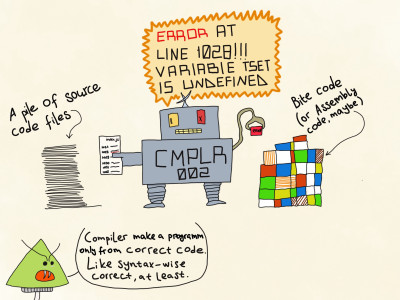 ERROR AT
LINE 1028!!!
VARIABLE TSET
IS UNDEFINED
A pile of source
code files
Bite code
(or Assembly
code, maybe)
CMPLR
002
Compiler make a programm
only from correct code.
Like syntax-wise
correct, at least.